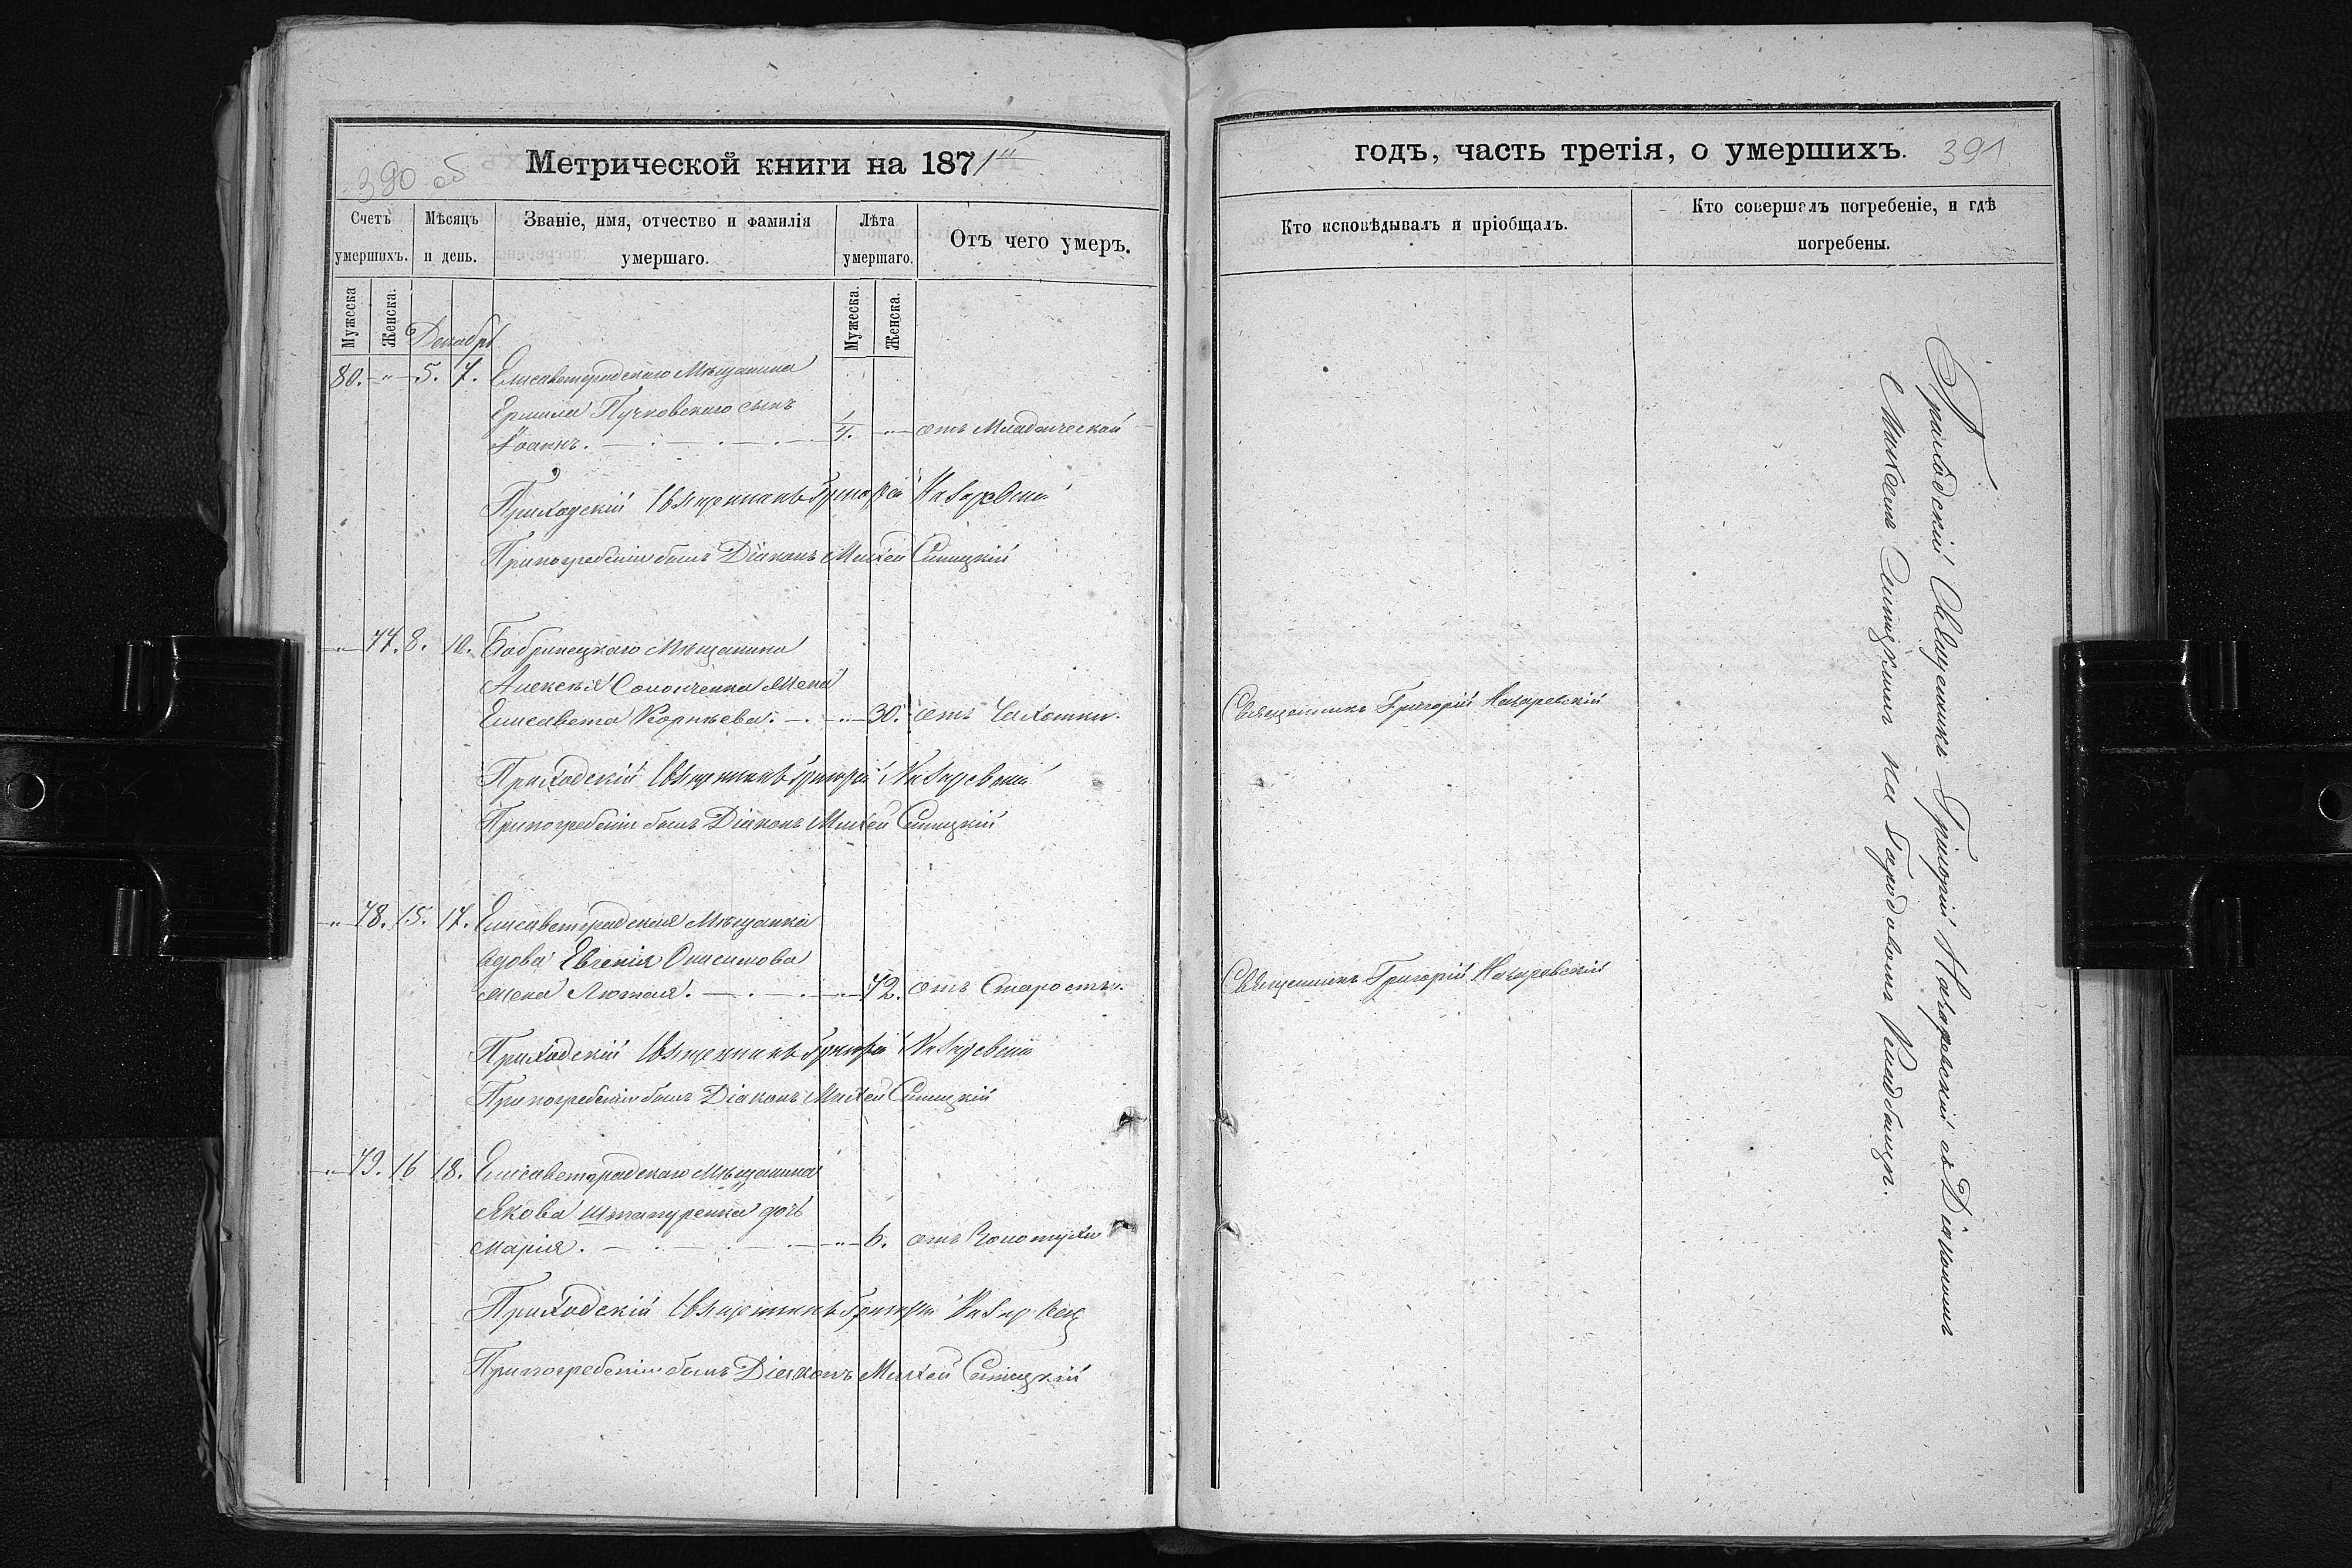 390 об
Метрической книги на 1871й
Счетъ умершихъ.
Мѣсяцъ и день.
Званіе, имя, отчество и фамилія умершаго.
Лѣта умершаго.
Отъ чего умеръ.
Мужеска
Женска.
Мужеска.
Женска.
Декабрь
80. " 5. 7. Елисаветградскаго Мѣщанина
Ермила Пучковскаго сынъ
Іоаннъ. 4. " отъ Младенческой
Приходскій Священникъ Григорій Назаревскій
При погребеніи былъ Діаконъ Михей Синицкій
" 77. 8. 10. Бобринецкаго Мѣщанина
Алексѣя Солонченка жена
Елисавета Корнѣева. " 30. отъ Чахотки.
Приходскій Священникъ Григорій Назаревскій
При погребеніи былъ Діаконъ Михей Синицкій
" 78. 15. 17. Елисаветградская Мѣщанка
вдова Евгенія Онисимова
жена Лютая. " 72. отъ Старости.
Приходскій Священникъ Григорій Назаревскій
При погребеніи былъ Діаконъ Михей Синицкій
" 79. 16 18. Елисаветградскаго Мѣщанина
Якова Штапуренка дочь
Марія. " 6. отъ Золотухи
Приходскій Священникъ Григорій Назаревскій
При погребеніи былъ Діаконъ Михей Синицкій
годъ, часть третія, о умершихъ. 391
Кто исповѣдывалъ и пріобщалъ.
Кто совершалъ погребеніе, и гдѣ
погребены.
Священникъ Григорій Назаревскій
Священникъ Григорій Назаревскій
Приходскій Священникъ Григорій Назаревскій съ Діакономъ
Михеемъ Синицкимъ на Городовомъ Кладбищѣ.